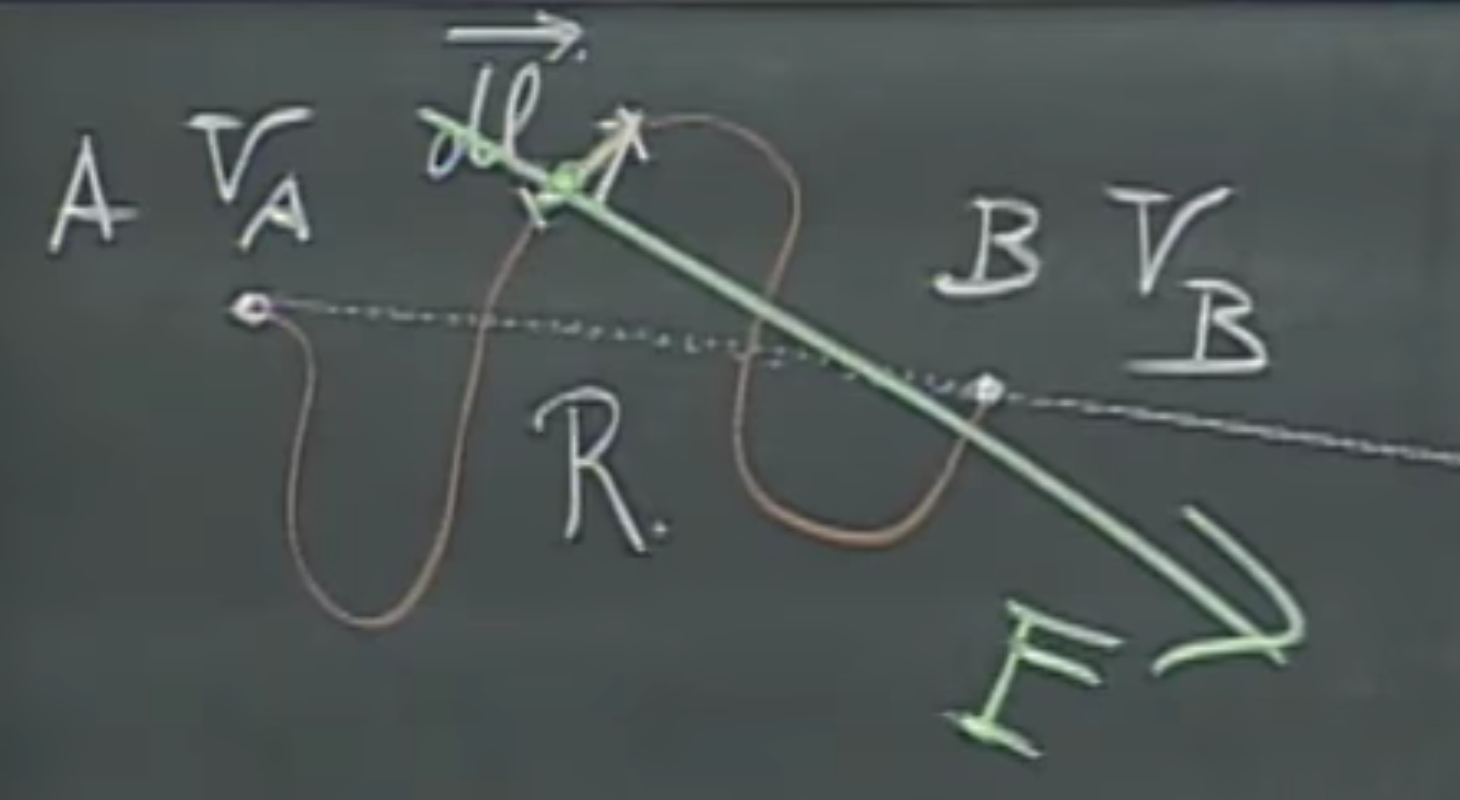 A V_A
dl
B V_B
R.
F